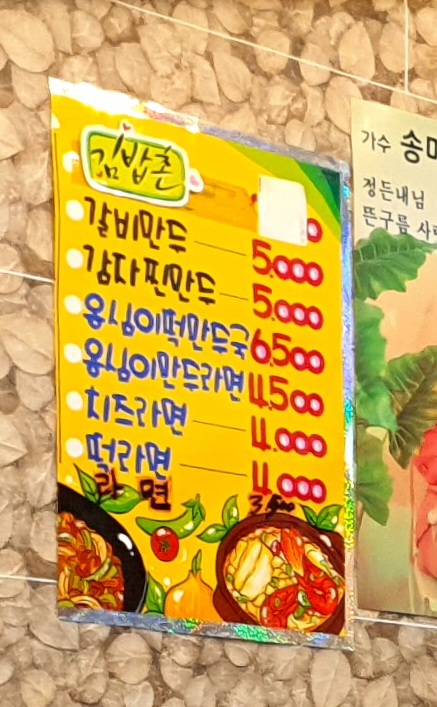 김밥촌
갈비만두 5.000
감자찐만두 5.000
옹심이떡만두국 6.500
옹심이만두라면 4.500
치즈라면 4.000
떡라면 4.000
라면 3.500
가수 송
정든내님
뜬구름